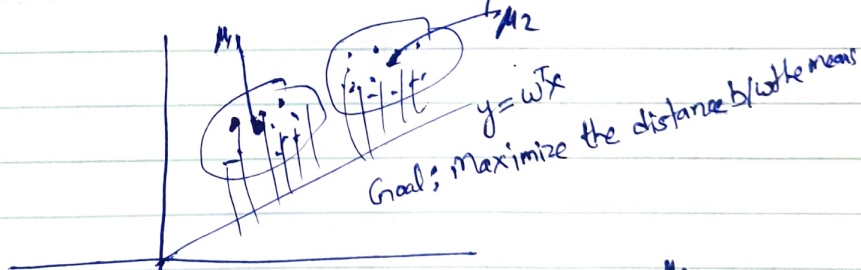 μ1
μ2
y = wᵀx
Goal: Maximize the distance b/w the means